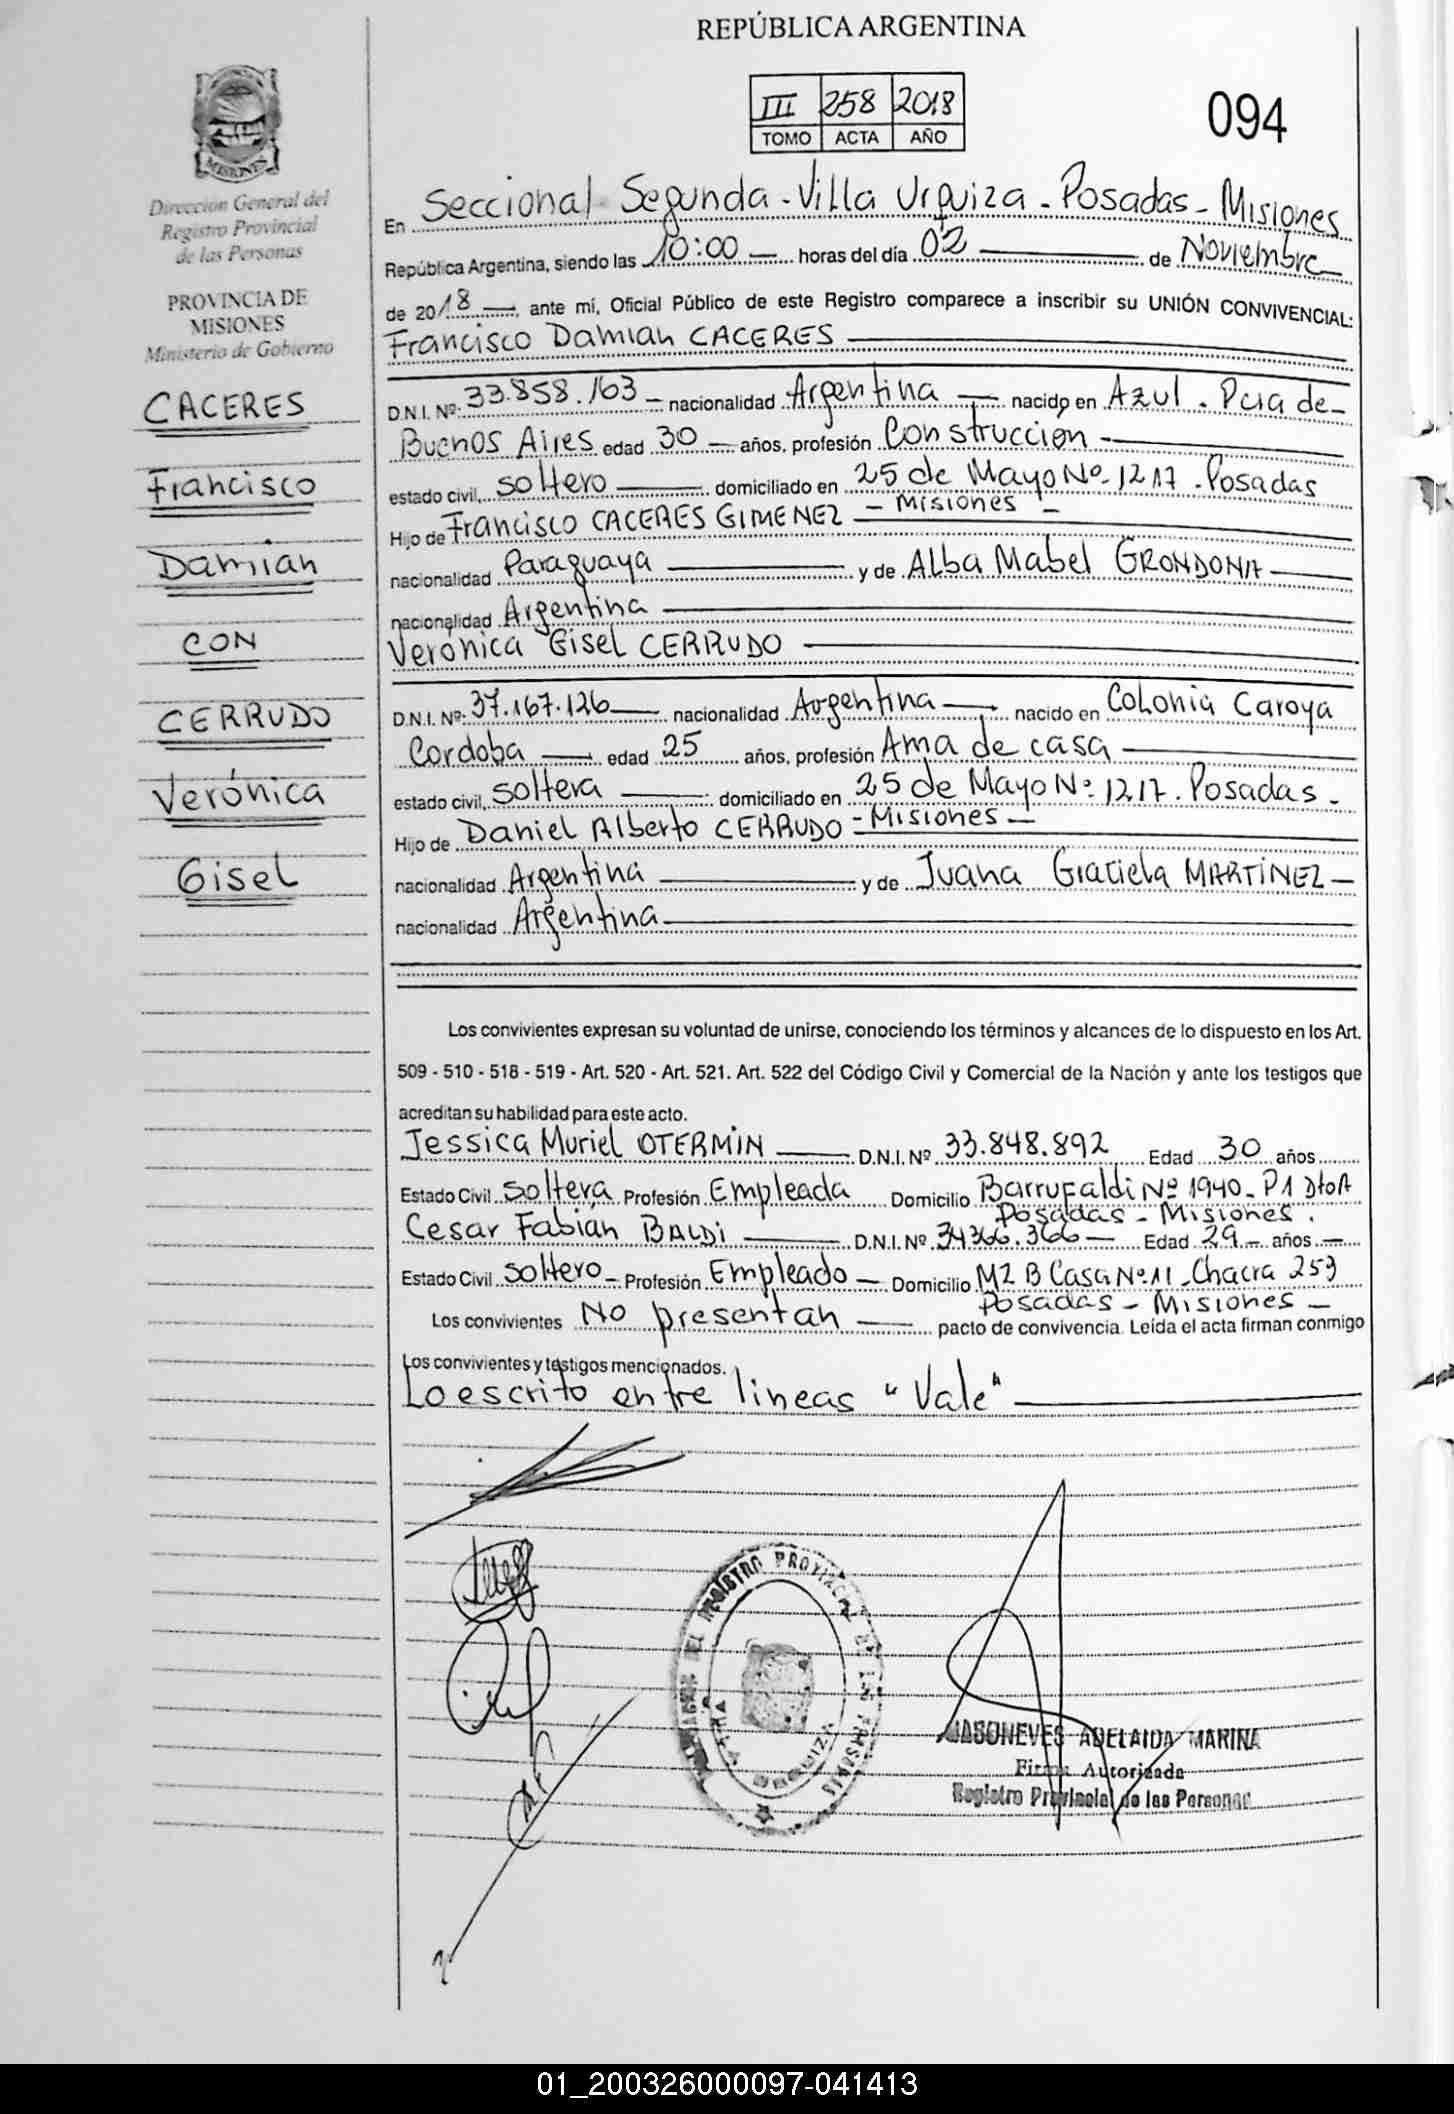 REPÚBLICA ARGENTINA
III 258 2018
TOMO ACTA AÑO
094
MISIONES
Dirección General del
Registro Provincial
de las Personas
PROVINCIA DE
MISIONES
Ministerio de Gobierno
CACERES
Francisco
Damian
CON
CERRUDO
Verónica
Gisel
En Seccional Segunda - Villa Urquiza - Posadas - Misiones
República Argentina, siendo las 10:00 horas del día 02 de Noviembre
de 2018, ante mí, Oficial Público de este Registro comparece a inscribir su UNIÓN CONVIVENCIAL:
Francisco Damian CACERES
D.N.I. Nº: 33.858.163 nacionalidad Argentina nacido en Azul. Pcia de
Buenos Aires edad 30 años, profesión Construccion
estado civil, soltero domiciliado en 25 de Mayo Nº 1217. Posadas
- Misiones -
Hijo de Francisco CACERES GIMENEZ
nacionalidad Paraguaya y de Alba Mabel GRONDONA
nacionalidad Argentina
Verónica Gisel CERRUDO
D.N.I. Nº: 37.167.126 nacionalidad Argentina nacido en Colonia Caroya
Cordoba edad 25 años, profesión Ama de casa
estado civil, soltera domiciliado en 25 de Mayo Nº 1217. Posadas -
- Misiones -
Hijo de Daniel Alberto CERRUDO
nacionalidad Argentina y de Juana Graciela MARTÍNEZ
nacionalidad Argentina
Los convivientes expresan su voluntad de unirse, conociendo los términos y alcances de lo dispuesto en los Art.
509 - 510 - 518 - 519 - Art. 520 - Art. 521. Art. 522 del Código Civil y Comercial de la Nación y ante los testigos que
acreditan su habilidad para este acto.
Jessica Muriel OTERMIN D.N.I. Nº 33.848.892 Edad 30 años
Estado Civil soltera Profesión Empleada Domicilio Barrufaldi Nº 1940 - P1 DtoA
Posadas - Misiones.
Cesar Fabián BALDI D.N.I. Nº 34366.366 Edad 29 años
Estado Civil soltero Profesión Empleado Domicilio MZ B Casa Nº 11 - Chacra 253
Posadas - Misiones -
Los convivientes No presentan pacto de convivencia. Leída el acta firman conmigo
Los convivientes y testigos mencionados.
Lo escrito entre lineas "Vale"
DEL REGISTRO PROVINCIAL DE LAS PERSONAS
VILLA URQUIZA
ADELAIDA MARINA
Firma Autorizada
Registro Provincial de las Personas
01_200326000097-041413